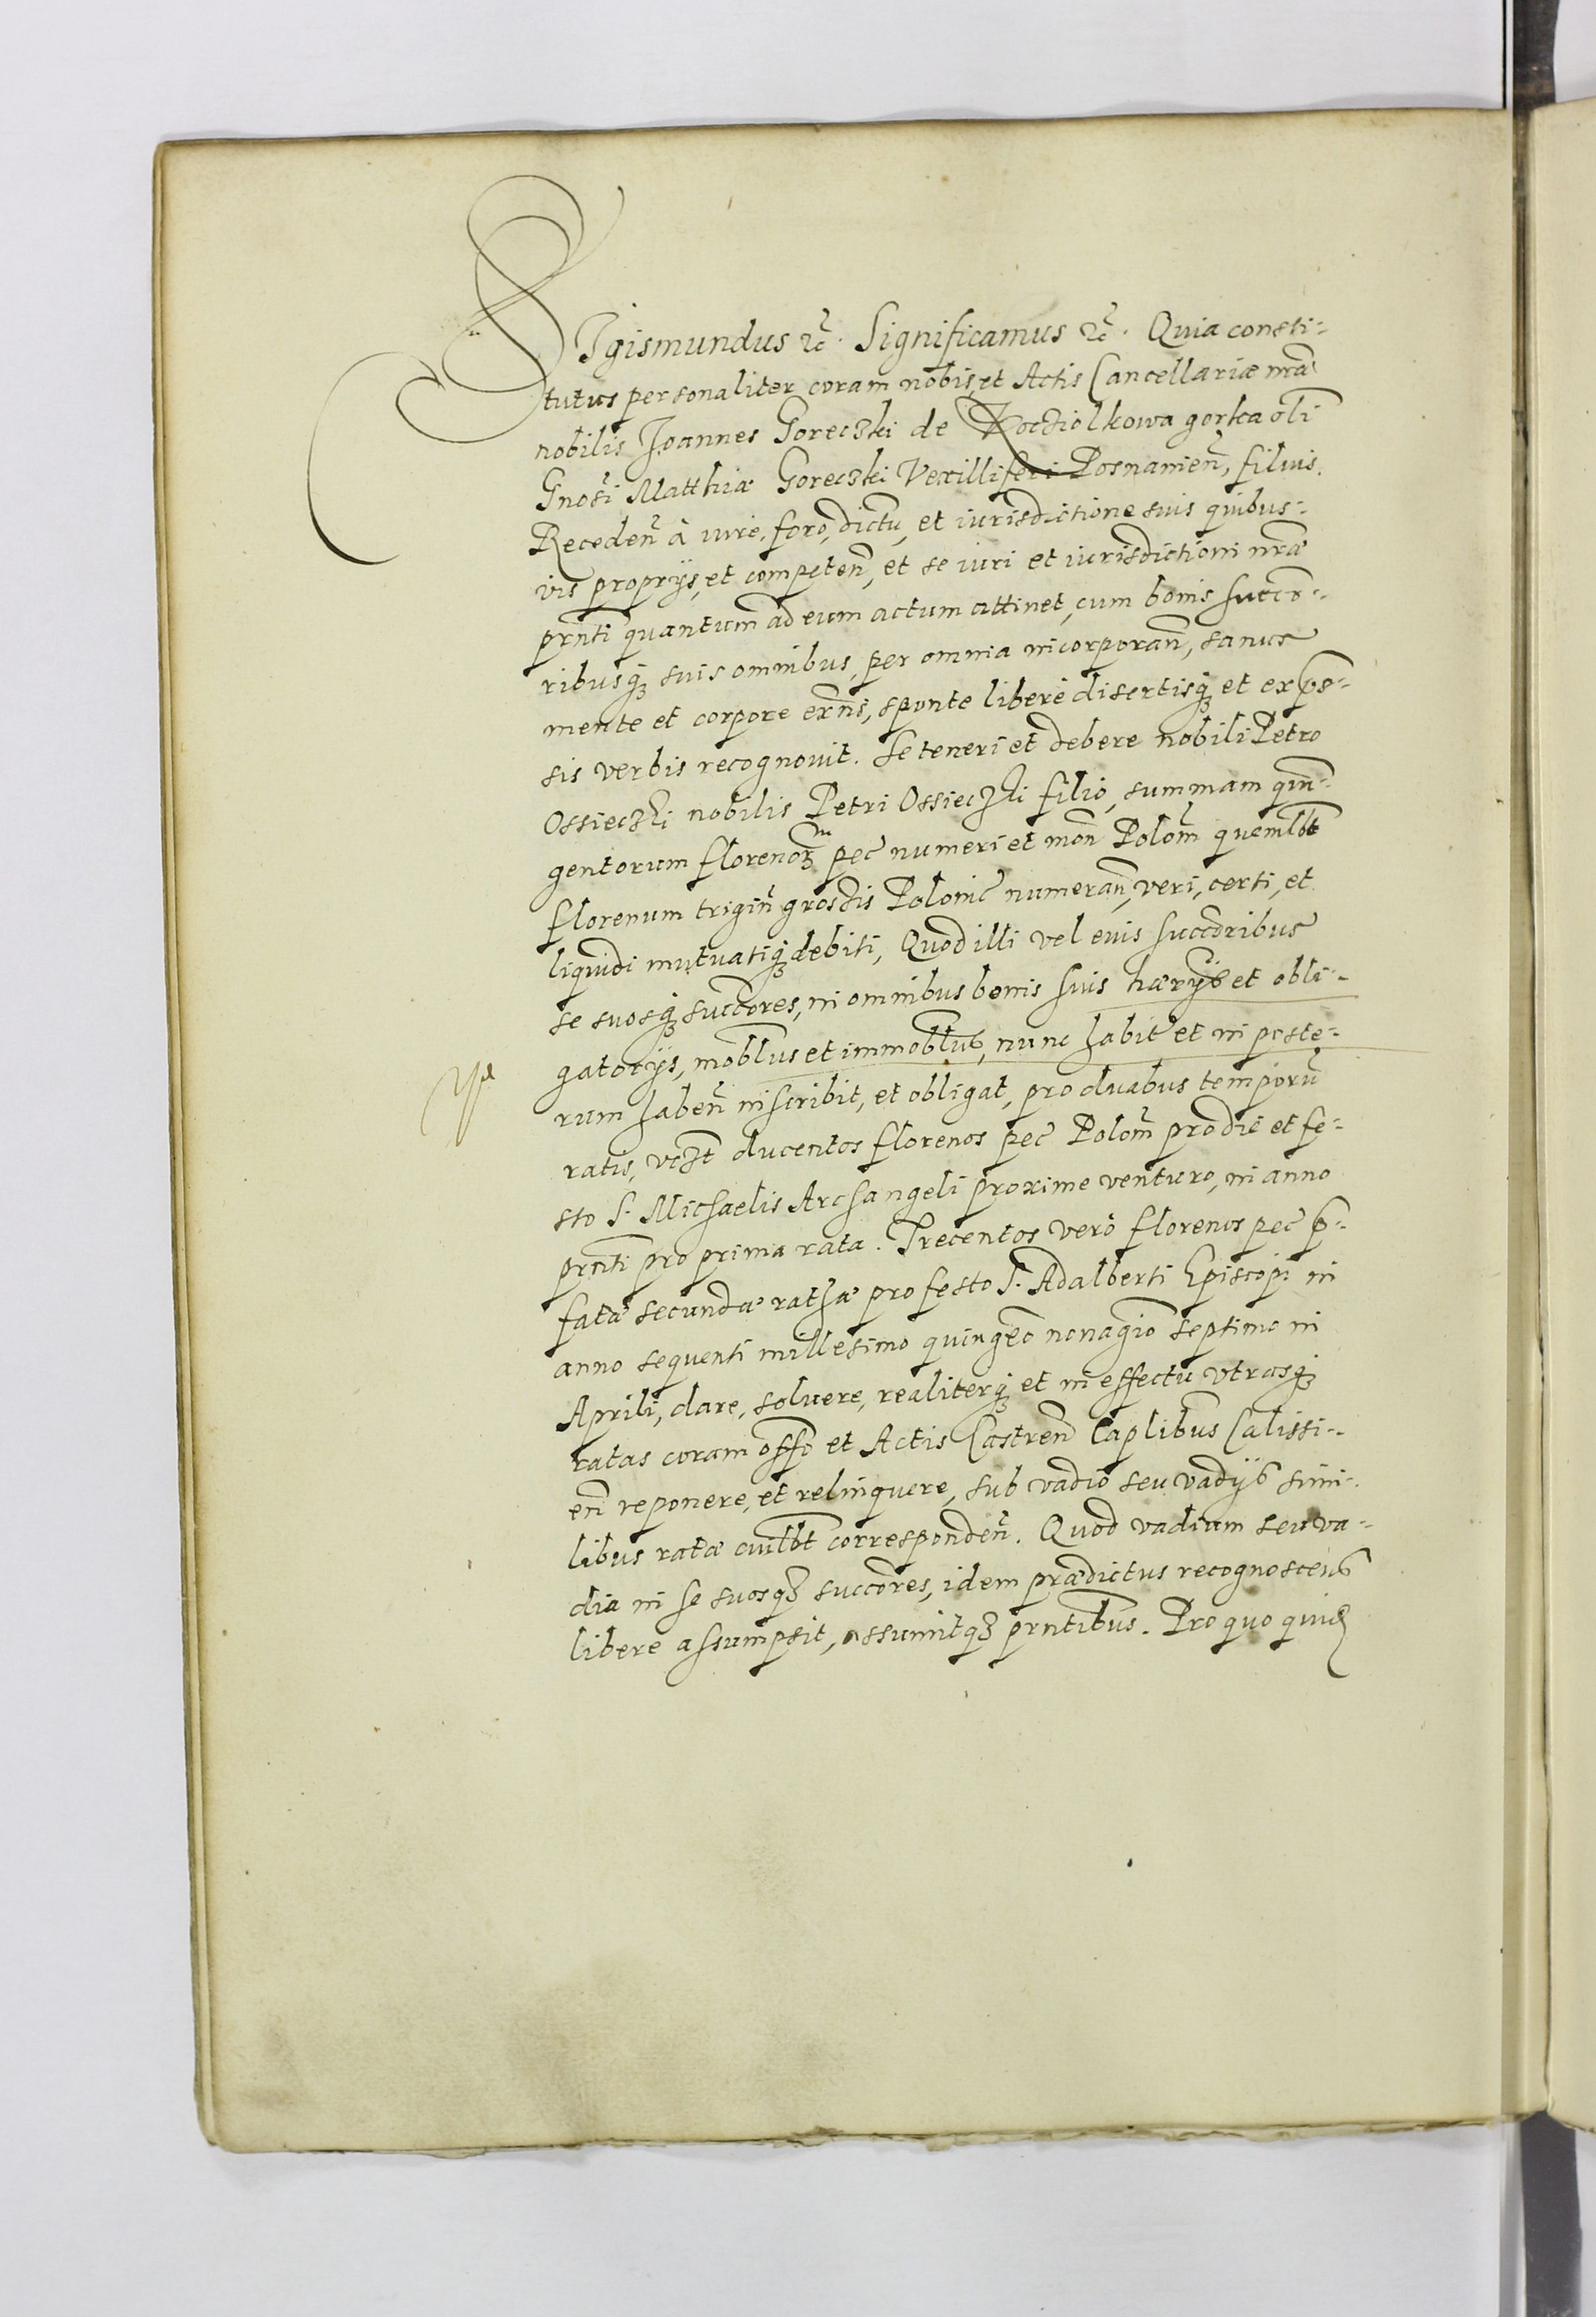 SIgismundus ꝛc̃. Significamus ꝛc̃. Quia consti-
tutus personaliter coram nobis, et Actis Cancellariæ nr̃æ
nobilis Joannes Goreczki de Kocziolkowa gorka oli͂
Gnosi Matthiæ Goreczki Vexilliferi Posnanien̄, filius.
Receden̄ à iure, foro, dictu, et iurisdictione suis quibus-
vis proprijs, et competen̄, et se iuri et iurisdictioni nr̃æ
prn̄ti quantum ad eum actum attinet, cum bonis succo-
ribusqꝫ suis omnibus, per omnia incorporan̄, sanus
mente et corpore exn̄s, sponte libere disertisqꝫ et expres-
sis verbis recognovit. Se teneri et debere nobili Petro
Ossieczki nobilis Petri Ossieczki filio, summam quin-
gentorum florenoꝝ pec̄ numeri et mon̄ Polon̄ quemlb̄t
florenum trigin̄ grossis Polonic̄ numeran̄, veri, certi, et
liquidi mutuatiqꝫ debiti, Quod illi vel euis succoribus
se suosqꝫ succ̄ores, in omnibus bonis suis hærijs et obli-
gatorijs, mobl̄ibus et immobl̄ibus, nunc habit̄ et in poste-
rum haben̄ inscribit, et obligat, pro duabus temporū
ratis, vczt ducentos florenos pec̄ Polon̄ pro die et fe-
sto S. Michaelis Archangeli proxime venturo, in anno
prn̄ti pro prima rata. Trecentos vero florenos pec̄ p̄-
fatæ secundæ rathæ pro festo S. Adalberti Episcopi in
anno sequenti millesimo quingēo nonagīo septimo in
Aprili, dare, solvere, realiterqꝫ et in effectu vtrasqꝫ
ratas coram off̄o et Actis Castren̄ Caplibus Calissi-
en̄ reponere, et relinquere, sub vadio seu vadijs simi-
libus ratæ cuilb̄t corresponden̄. Quod vadium seu va-
dia in se suosqꝫ succ̄ores, idem prædictus recognoscens
libere assumpsit, assumitqꝫ prn̄tibus. Pro quo quidē